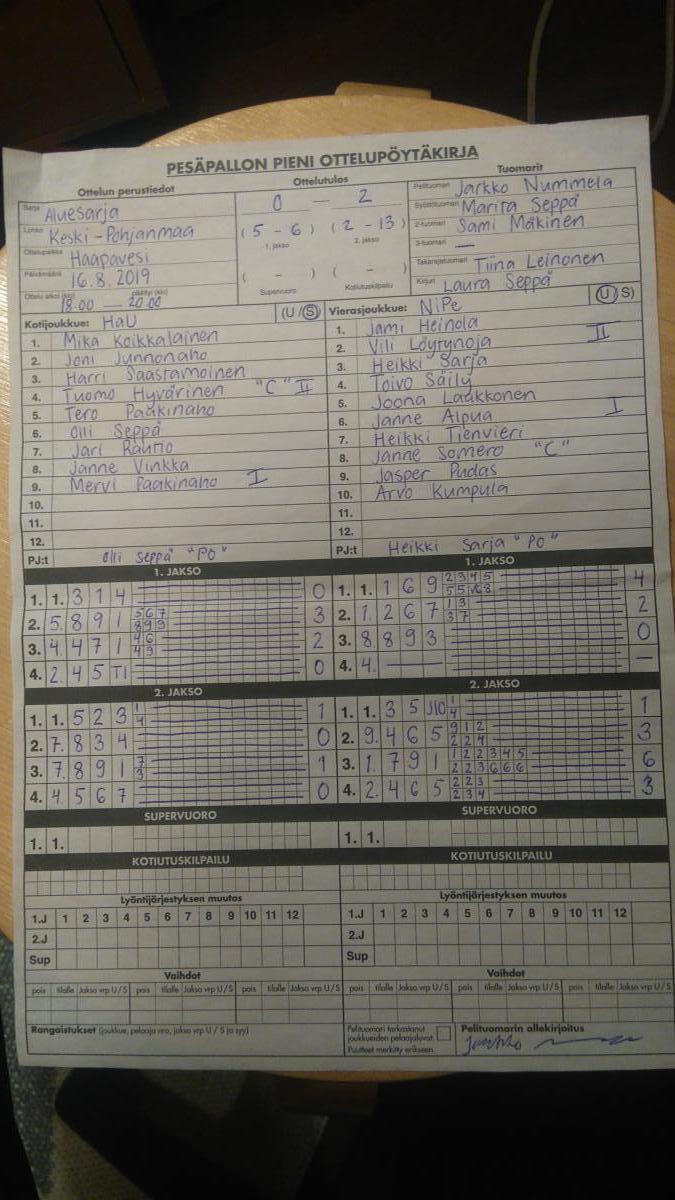 PESÄPALLON PIENI OTTELUPÖYTÄKIRJA
Ottelun perustiedot
Sarja Aluesarja
Lohko Keski-Pohjanmaa
Ottelupaikka Haapavesi
Päivämäärä 16.8.2019
Ottelu alkoi (klo) 18.00 — päättyi (klo) 20.00
Ottelutulos
0 — 2
(5 - 6) (2 - 13)
1. jakso 2. jakso
( - ) ( - )
Supervuoro Kotiutuskilpailu
Tuomarit
Pelituomari Jarkko Nummela
Syöttötuomari Marita Seppä
2-tuomari Sami Mäkinen
3-tuomari —
Takarajatuomari Tiina Leinonen
Kirjuri Laura Seppä
Kotijoukkue: HaU (U/S)
1. Mika Koikkalainen
2. Joni Junnonaho
3. Harri Saastamoinen
4. Tuomo Hyvärinen "C" II
5. Tero Paakinaho
6. Olli Seppä
7. Jari Rautio
8. Janne Vinkka
9. Mervi Paakinaho I
10.
11.
12.
PJ:t Olli Seppä "PO"
Vierasjoukkue: NiPe (U/S)
1. Jami Heinola
2. Vili Löytynoja II
3. Heikki Sarja
4. Toivo Säily
5. Joona Laakkonen
6. Janne Alpua I
7. Heikki Tienvieri
8. Janne Somero "C"
9. Jasper Pudas
10. Arvo Kumpula
11.
12.
PJ:t Heikki Sarja "PO"
1. JAKSO
1. 1. 3 1 4 0
2. 5. 8 9 1 5 6 7 8 9 9 3
3. 4. 4 7 1 4 6 4 9 2
4. 2. 4 5 T1 0
1. JAKSO
1. 1. 1 6 9 2 3 4 5 5 5 6 8 4
2. 1. 2 6 7 1 3 3 7 2
3. 8. 8 9 3 0
4. 4. — —
2. JAKSO
1. 1. 5 2 3 1 4 1
2. 7. 8 3 4 0
3. 7. 8 9 1 7 3 1
4. 4. 5 6 7 0
2. JAKSO
1. 1. 3 5 J10 1 4 1
2. 9. 4 6 5 9 1 2 2 2 4 3
3. 1. 7 9 1 1 2 2 3 4 5 2 2 3 6 6 6 6
4. 2. 4 6 5 2 2 3 2 3 4 3
SUPERVUORO
1. 1.
SUPERVUORO
1. 1.
KOTIUTUSKILPAILU
KOTIUTUSKILPAILU
Lyöntijärjestyksen muutos
1.J 1 2 3 4 5 6 7 8 9 10 11 12
2.J
Sup
Lyöntijärjestyksen muutos
1.J 1 2 3 4 5 6 7 8 9 10 11 12
2.J
Sup
Vaihdot
pois tilalle Jakso vrp U/S pois tilalle Jakso vrp U/S pois tilalle Jakso vrp U/S
Vaihdot
pois tilalle Jakso vrp U/S pois tilalle Jakso vrp U/S pois tilalle Jakso vrp U/S
Rangaistukset (joukkue, pelaaja nro, jakso vrp U / S ja syy)
Pelituomari tarkastanut
joukkueiden pelaajaluvat.
Puutteet merkitty erikseen.
Pelituomarin allekirjoitus
Jarkko